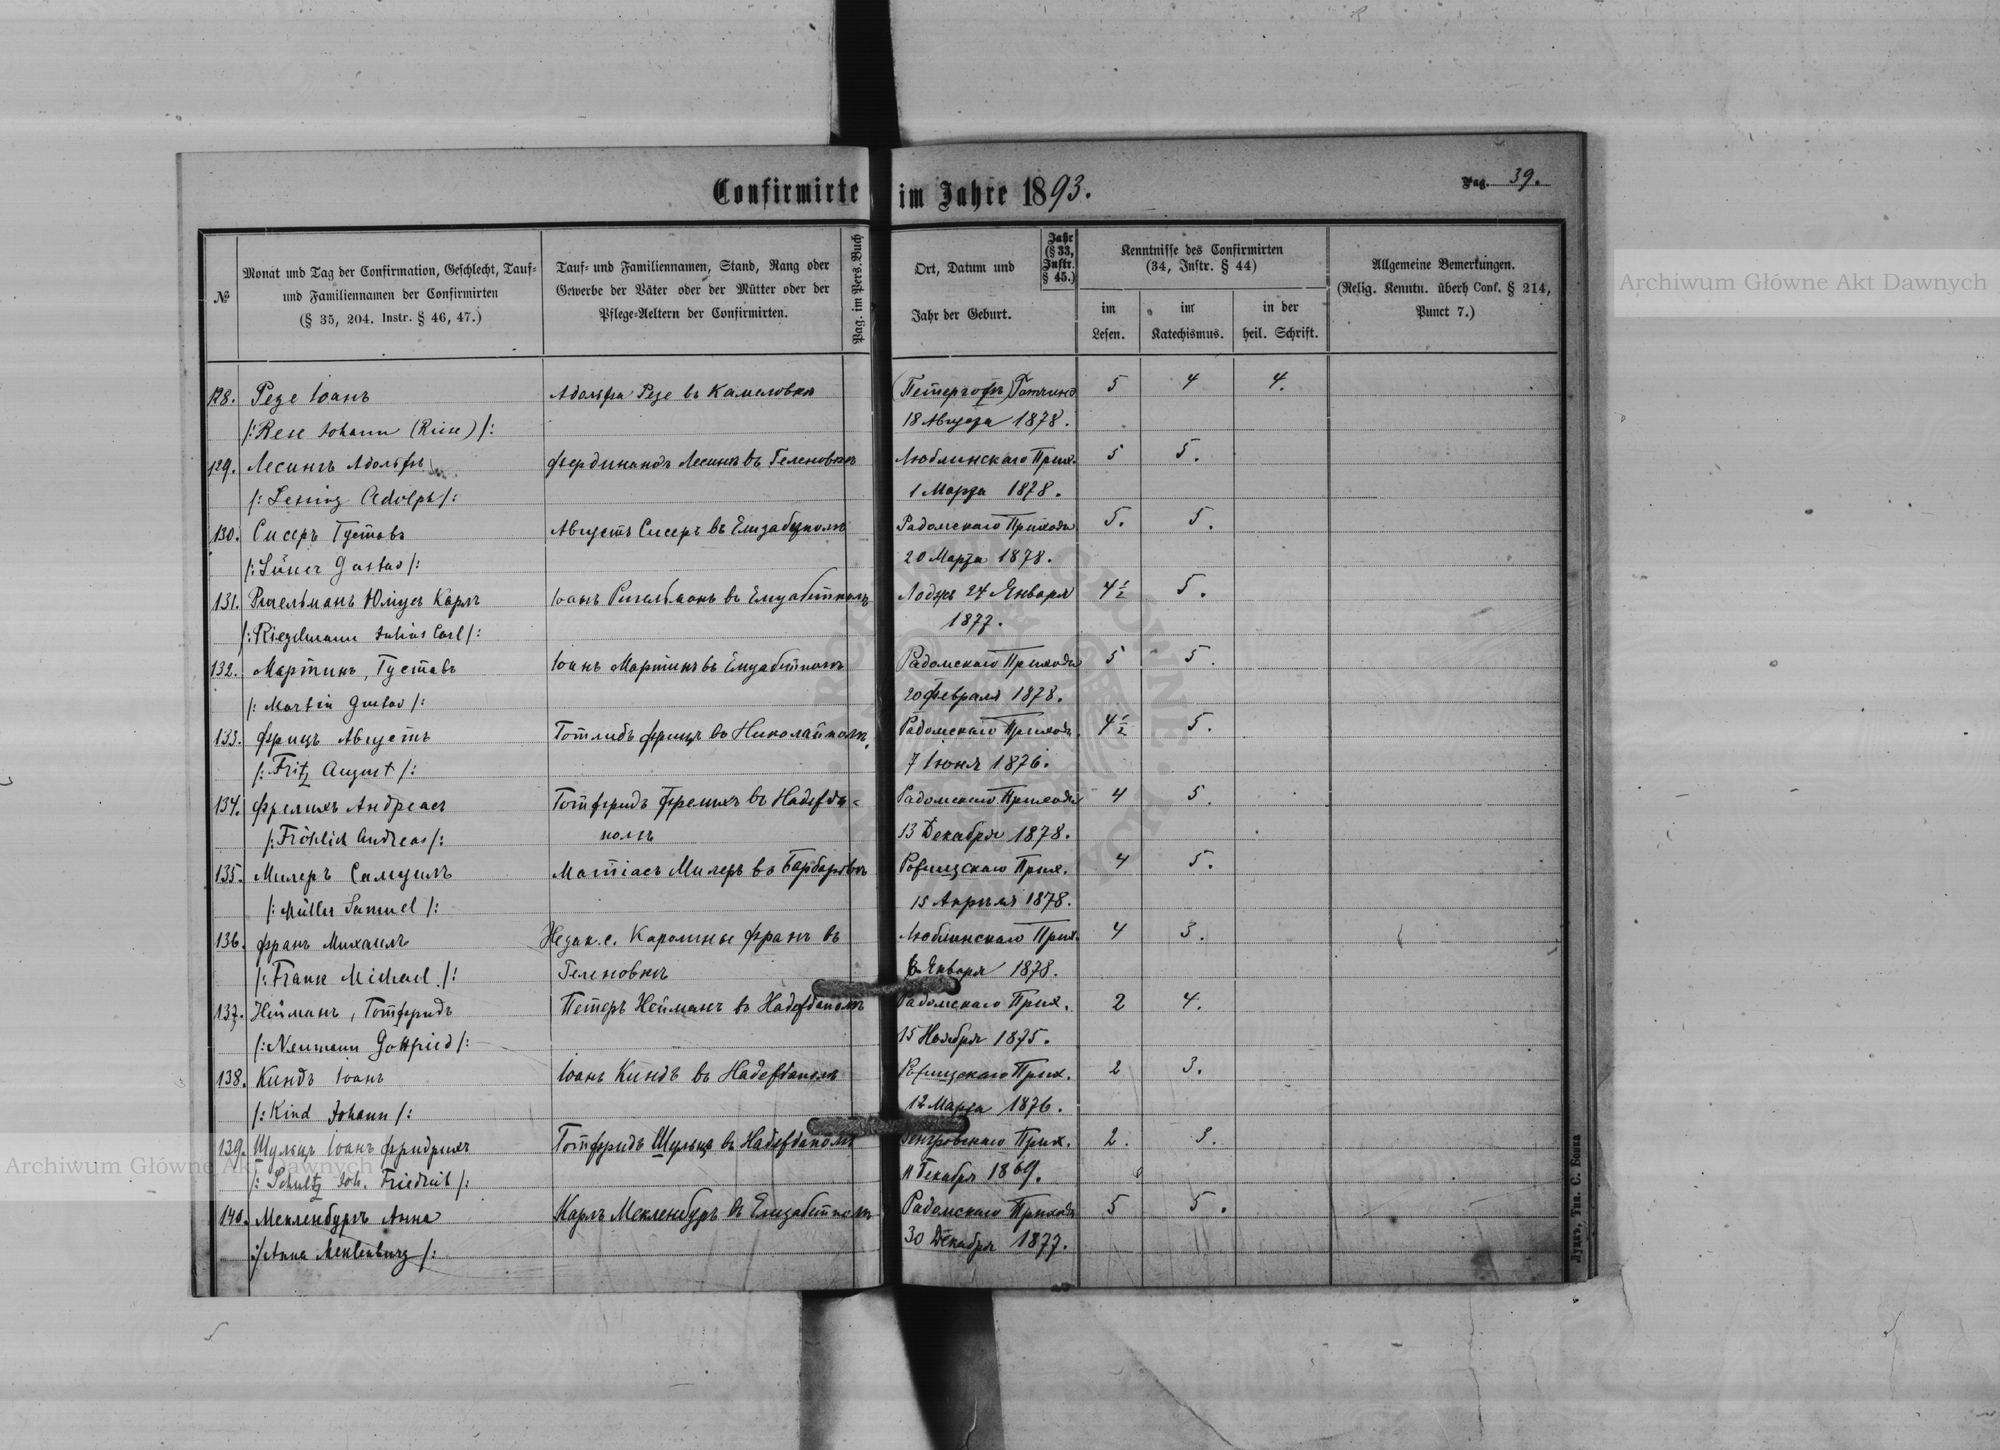 Confirmirte im Jahre 1893.
Pag. 39.
№
Monat und Tag der Confirmation, Geschlecht, Tauf- und Familiennamen der Confirmirten
(§ 35, 204. Instr. § 46, 47.)
Tauf- und Familiennamen, Stand, Rang oder
Gewerbe der Väter oder der Mütter oder der
Pflege-Aeltern der Confirmirten.
Pag. im Pers. Buch
Ort, Datum und
Jahr der Geburt.
Jahr
(§ 33,
Instr.
§ 45.)
Kenntnisse des Confirmirten
(34, Instr. § 44)
im
Lesen.
im
Katechismus.
in der
heil. Schrift.
Allgemeine Bemerkungen.
(Relig. Kenntn. überh Conf. § 214,
Punct 7.)
128. Резе Іоанъ Адольфа Резе въ Камеловкѣ (Петергофъ) Гатчино 5 4 4.
/: Rese Johann (Riese) /: 18 Августа 1878.
129. Лесингъ Адольфъ Фердинандъ Лесингъ въ Геленовкѣ Люблинскаго Прих. 5 5.
/: Lessing Adolph /: 1 Марта 1878.
130. Сисеръ Густавъ Августъ Сисеръ въ Елизабетполь Радомскаго Прихода 5. 5.
/: Gustav /: 20 Марта 1878.
131. Ригельманъ Юліусъ Карлъ Іоанъ Ригельманъ въ Елизабетполь Лодзь 24 Января 4½ 5.
/: Riegelmann Julius Carl /: 1877.
132. Мартинъ, Густавъ Іоанъ Мартинъ въ Елизабетполь Радомскаго Прихода 5 5.
/: Martin Gustav /: 20 Февраля 1878.
133. Фрицъ Августъ Готлибъ Фрицъ въ Николайполь, Радомскаго Прихода 4½ 5.
/: Fritz August /: 7 Іюня 1876.
134. Фрелихъ Андреасъ Готфридъ Фрелихъ въ Надежда- Радомскаго Прихода 4 5.
/: Fröhlich Andreas /: поль 13 Декабря 1878.
135. Милеръ Самуилъ Матіасъ Милеръ въ Барбаровкѣ Рожищскаго Прих. 4 5.
/: Müller Samuel /: 15 Апрѣля 1878.
136. Франъ Михаилъ Незак. с. Каролины Франъ въ Люблинскаго Прих. 4 3.
/: Frank Michael /: Геленовкѣ Января 1878.
137. Нейманъ, Готфридъ Петеръ Нейманъ въ Надеждаполь Радомскаго Прих. 2 4.
/: Neumann Gottfried /: 15 Ноября 1875.
138. Киндъ Іоанъ Іоанъ Киндъ въ Надеждаполь Рожищскаго Прих. 2 3.
/: Kind Johann /: 12 Марта 1876.
139. Шульцъ Іоанъ Фридрихъ Готфридъ Шульцъ въ Надеждаполь Венгровскаго Прих. 2. 3.
/: Schultz Joh. Friedrich /: 11 Декабря 1869.
140. Мекленбургъ Анна Карлъ Мекленбургъ въ Елизабетполь Радомскаго Прихода 5 5.
/: Anna Meklenburg /: 30 Декабря 1877.
Луцкъ, Тип. С. Бонка
Archiwum Główne Akt Dawnych
Archiwum Główne Akt Dawnych